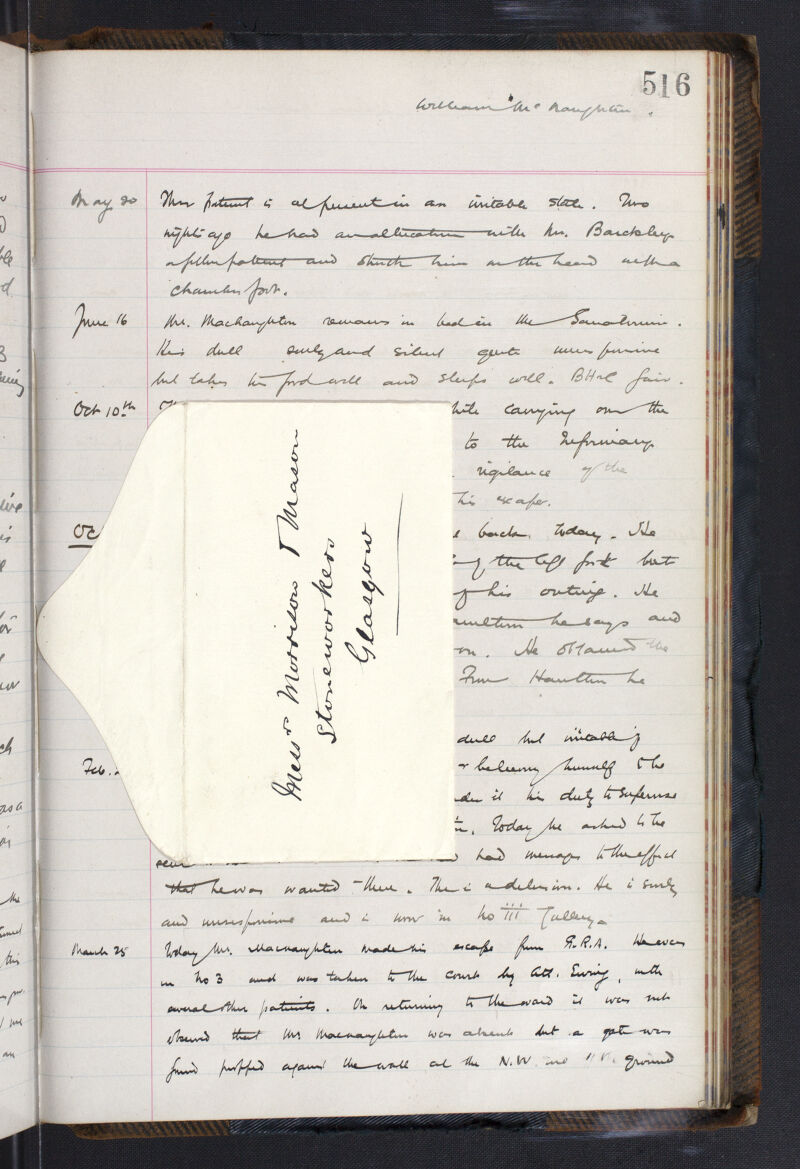 516
William McNaughton.
May 20 This patient is at present in an irritable state. Two
nights ago he had an altercation with Mr. Barckley
a fellow patient and struck him on the head with a
chamber pot.
June 16 Mr. Macnaughton remains in bed in the Sanatorium.
He is dull surly and silent quite unresponsive
but takes his food well and sleeps well. B H & C fair.
Oct 10th while carrying on the
to the Infirmary
vigilance of the
his escape.
Oc back today. He
of the left foot but
of his outing. He
he says and
on. He obtained the
From Hamilton he
dull but irritable
Feb. believing himself to be
it his duty to supervise
Today he asked to be
had messages to the effect
that he was wanted there. This is a delusion. He is surly
and unresponsive and is now in No III Gallery.
March 25 Today Mr. Macnaughton made his escape from G.R.A. He was
in No 3 and was taken to the court by Att. Ewing, with
several other patients. On returning to the ward it was not
observed that Mr Macnaughton was absent but a gate was
found propped against the wall at the N.W. ground
Messrs Morrison & Mason
Stoneworkers
Glasgow